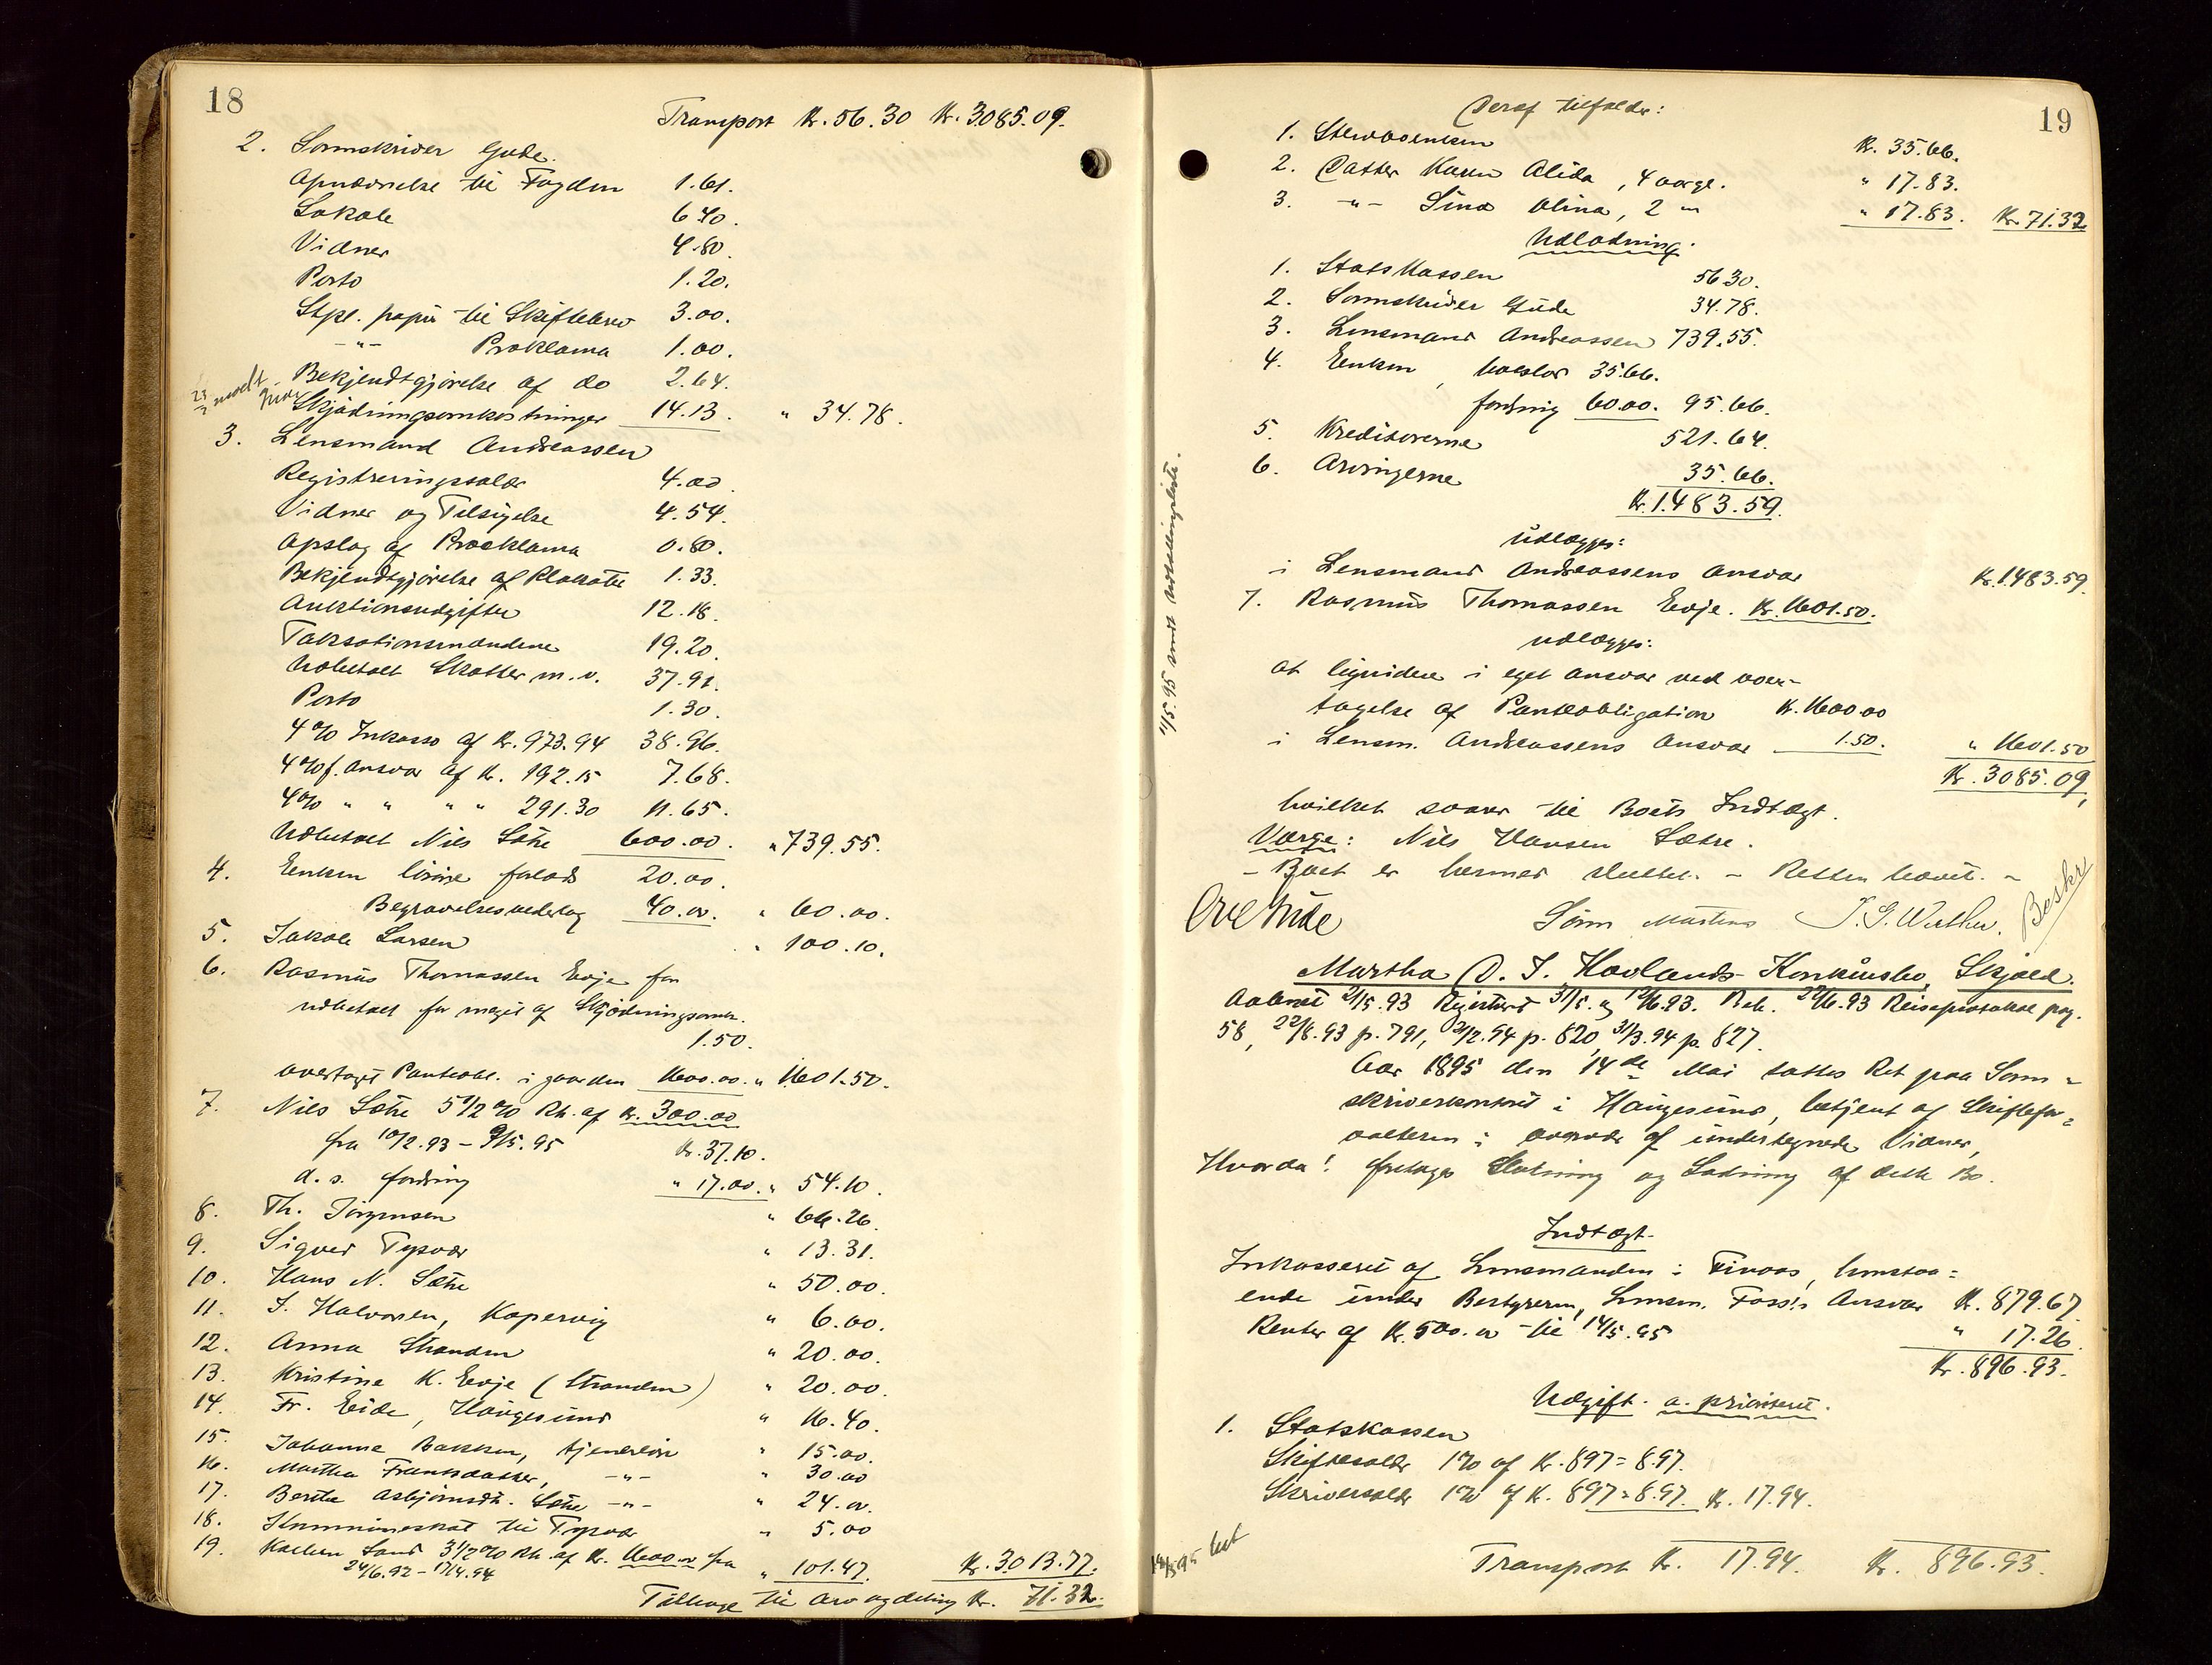 18
Transport Kr. 56.30 Kr. 3085.09.
2. Sorenskriver Gude.
Apnævnelse til Fogden 1.61.
Lokale 6 40.
Vidner 4.80.
Porto 1.20.
Stpl. papir til Skiftebrev 3.00.
-"- Proklama 1.00.
Bekjendtgjørelse af do 2.64.
Skjødningsomkostninger 14.13. " 34.78.
3. Lensmand Andreassen
Registreringssalær 4.00
Vidner og Tilsigelse 4.54.
Opslag af Proklama 0.80.
Bekjendtgjørelse af Plakater 1.33.
Auktionsudgifter 12.18.
Taksationsmændene 19.20.
Udbetalt Skatter m.v. 37.91.
Porto 1.30.
4% Inkasso af Kr. 973.94 38.96.
4% f. ansvar af Kr. 192.15 7.68.
4% " " " " 291.30 11.65.
Udbetalt Nils Sætre 600.00. " 739.55.
4. Enken forlods 20.00.
Begravelsesvederlag 40.00. " 60.00.
5. Jakob Larsen " 100.10.
6. Rasmus Thomassen Evje for
udbetalt for meget af Skjødningsomk.
1.50.
overtaget Panteobl. i gaarden 1600.00. " 1601.50.
7. Nils Sætre 5 1/2 % Rt. af Kr. 300.00
fra 10/2.93 - 9/5.95 Kr. 37.10.
d. s. fordring " 17.00. " 54.10.
8. Th. Jørgensen " 66.26.
9. Sigved Tysvær " 13.31.
10. Hans N. Sætre " 50.00.
11. J. Halvorsen, Kopervig " 6.00.
12. Anna Stranden " 20.00.
13. Kristine K. Evje (Stranden) " 20.00.
14. Fr. Eide, Haugesund " 16.40.
15. Johanna Bakken, tjenerløn " 15.00.
16. Martha Fransdatter, -"- " 30.00
17. Berthe Asbjørnsdt. Sætre -"- " 24.00.
18. Kommuneskat til Tysvær " 5.00
19. Kathen Sand 3 1/2 % Rt. af Kr. 1600.00 fra
24/6.92 - 17/4.94 " 101.47. Kr. 3013.77.
Tilbage til Arv og deling Kr. 71.32.
19
Deraf tilfalder:
1. Sterboenken Kr. 35.66.
2. Datter Karen Alida, 4 aargl. " 17.83.
3. -"- Sina Olina, 2 -"- " 17.83. Kr. 71.32
Udlodning.
1. Statskassen 56 30.
2. Sorenskriver Gude 34.78.
3. Lensmand Andreassen 739.55.
4. Enken, 35.66.
fordring 60.00. 95.66.
5. Kreditorerne 521.64.
6. Arvingerne 35.66.
Kr. 1483.59.
udlægges:
i Lensmand Andreassens Ansvar Kr. 1483.59.
7. Rasmus Thomassen Evje. Kr. 1601.50.
udlægges:
at liquidere i eget ansvar ved over-
tagelse af Panteobligation Kr. 1600.00
i Lensm. Andreassens Ansvar 1.50. " 1601.50
Kr. 3085.09,
hvilket svarer til Boets Indtægt.
Værge: Nils Hansen Sætre.
- Boet er hermed sluttet. - Retten hævet. -
Ove Gude Sønn Martens J. G. Walther. Beskr
Martha O. J. Hovlands Konkursbo, Skjold.
Aabnet 2/15.93 Registrert 31/5. og 12/6.93. Beh. 29/6.93 Reiseprotokol pag.
58, 22/8.93 p. 791, 21/2.94 p. 820, 31/3.94 p. 827.
Aar 1895 den 14de Mai sattes Ret paa Soren-
skriverkontoret i Haugesund, betjent af Skiftefor-
valteren i overvær af undertegnede Vidner,
Hvorda: foretoges Slutning og Lodning af dette Bo.
Indtægt.
Inkasseret af Lensmanden i Tivoas, henstaa-
ende under Bestyreren, Lensm. Foss's Ansvar Kr. 879.67
Renter af Kr. 500.00 til 14/5.95 " 17.26.
Kr. 896.93.
Udgift. a. prioriteret.
1. Statskassen
Skiftesalær 1% af Kr. 897 = 8.97.
Skriversalær 1% af K. 897 = 8.97. Kr. 17.94.
Transport Kr. 17.94. Kr. 896.93.